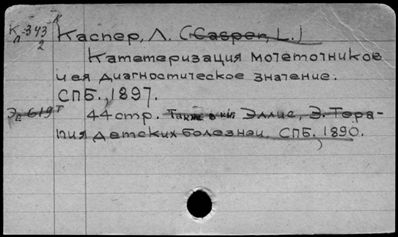 К 343 К
П 2
Каспер, Л. (Casper, L.)
Катетеризация мочеточников
и ея диагностическое значение.
СПБ., 1897.
Э 619 т 44 стр. Также в кн. Эллис, Э. Тера-
пия детских болезней. СПБ., 1890.